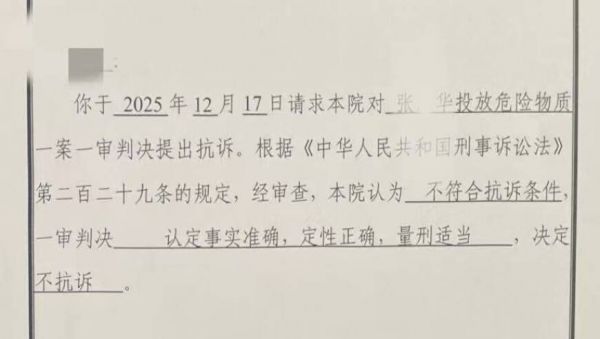 :
你于 2025 年 12 月 17 日请求本院对 张 华投放危险物质
一案一审判决提出抗诉。根据《中华人民共和国刑事诉讼法》
第二百二十九条的规定，经审查，本院认为 不符合抗诉条件，
一审判决 认定事实准确，定性正确，量刑适当 ，决定
不抗诉 。